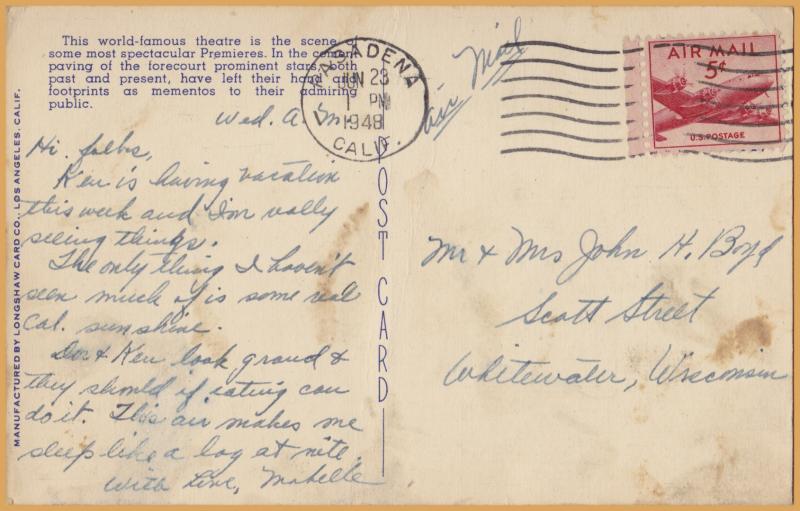 This world-famous theatre is the scene of
some most spectacular Premieres. In the cement
paving of the forecourt prominent stars, both
past and present, have left their hand and
footprints as mementos to their admiring
public.
Wed. A.M.
Hi folks,
Ken is having vacation
this week and I'm really
seeing things.
The only thing I haven't
seen much of is some real
Cal. sunshine.
Dor & Ken look grand &
they should if eating can
do it. This air makes me
sleep like a log at nite.
With Love, Mabelle
MANUFACTURED BY LONGSHAW CARD CO., LOS ANGELES, CALIF.
POST CARD
PASADENA
JUN 23
1 PM
1948
CALIF.
Air Mail
AIR MAIL
5¢
U.S. POSTAGE
Mr & Mrs John H. Boyd
Scott Street
Whitewater, Wisconsin